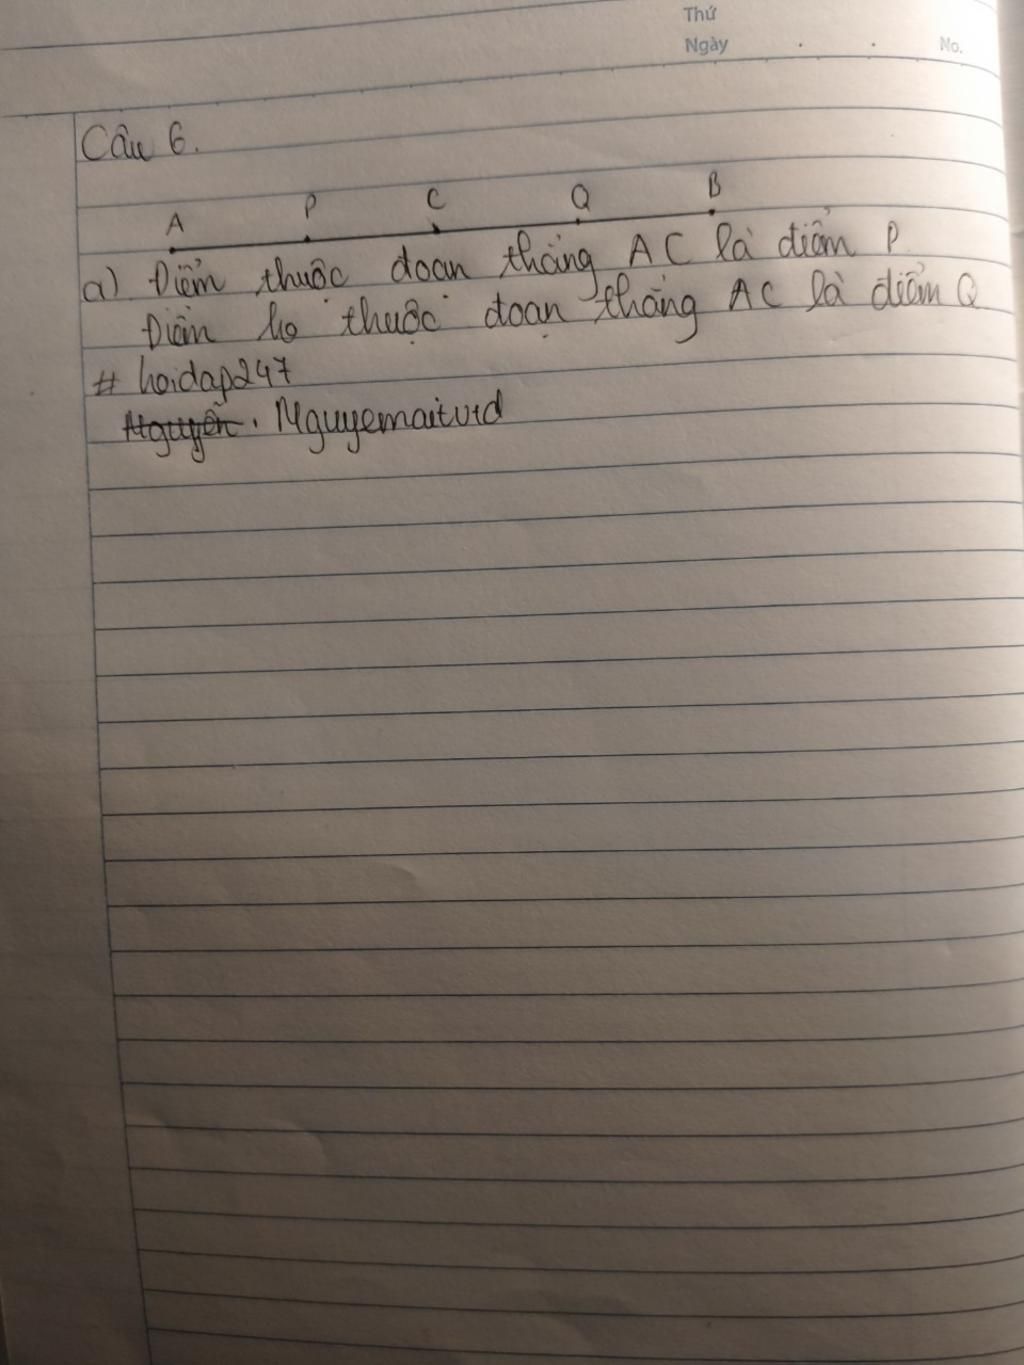 Thứ
Ngày . . No.
Câu 6.
A P C Q B
a) Điểm thuộc đoạn thẳng AC là điểm P
Điểm ko thuộc đoạn thẳng AC là điểm Q
# hoidap247
Nguyễn. Nguyemaitvtd